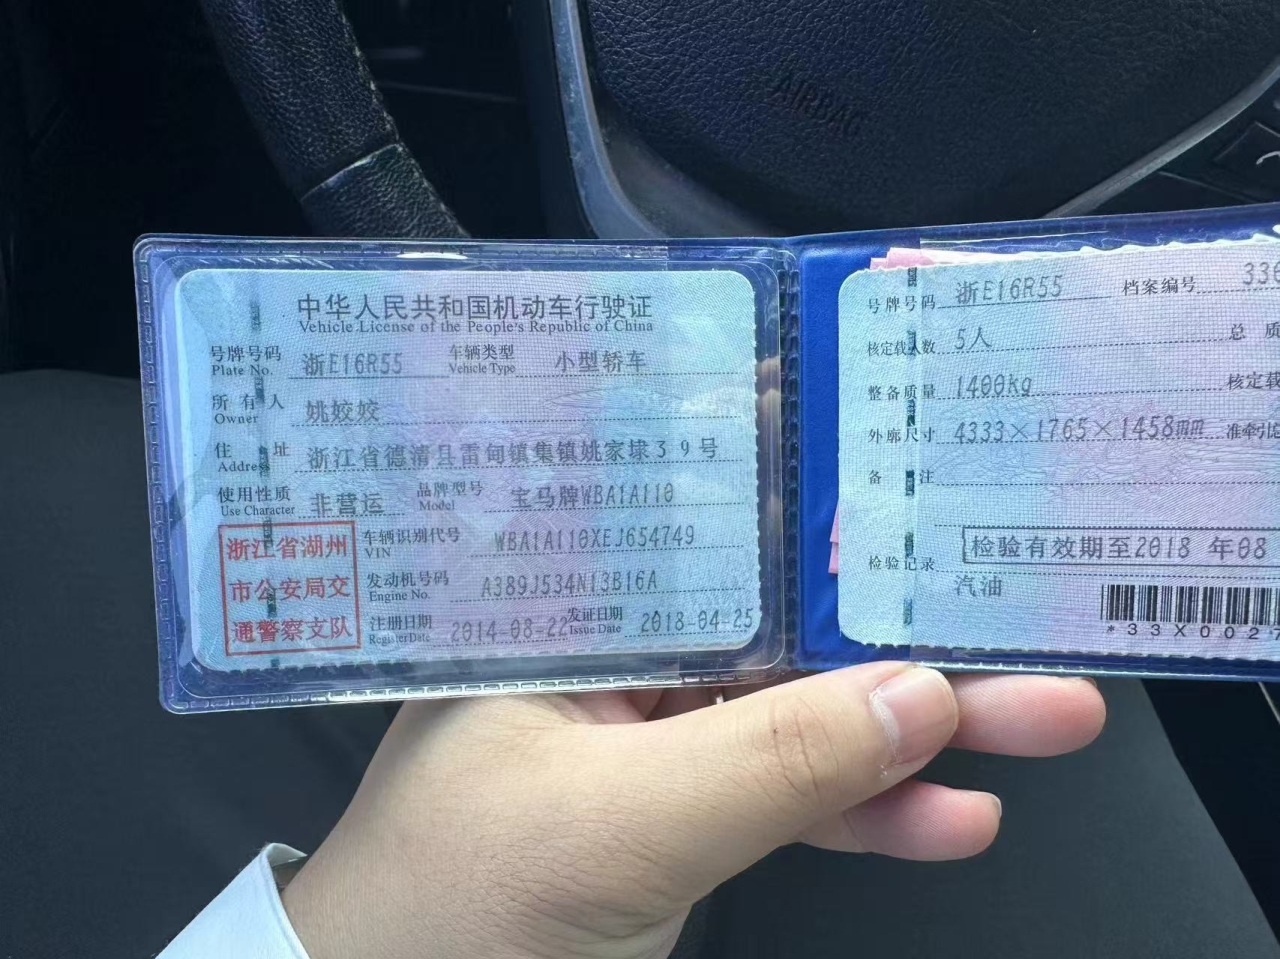 AIRBAG
中华人民共和国机动车行驶证
Vehicle License of the People's Republic of China
号牌号码 浙E16R55 车辆类型 小型轿车
Plate No. Vehicle Type
所有人 姚姣姣
Owner
住址 浙江省德清县雷甸镇集镇姚家埭39号
Address
使用性质 非营运 品牌型号 宝马牌WBA1A110
Use Character Model
浙江省湖州
市公安局交
通警察支队
车辆识别代号 WBA1A110XEJ654749
VIN
发动机号码 A389J534N13B16A
Engine No.
注册日期 2014-08-22 发证日期 2018-04-25
Register Date Issue Date
号牌号码 浙E16R55 档案编号 339
核定载人数 5人 总质
整备质量 1400kg 核定载
外廓尺寸 4333×1765×1458mm 准牵引
备注
检验有效期至2018 年08
检验记录
汽油
*33X002